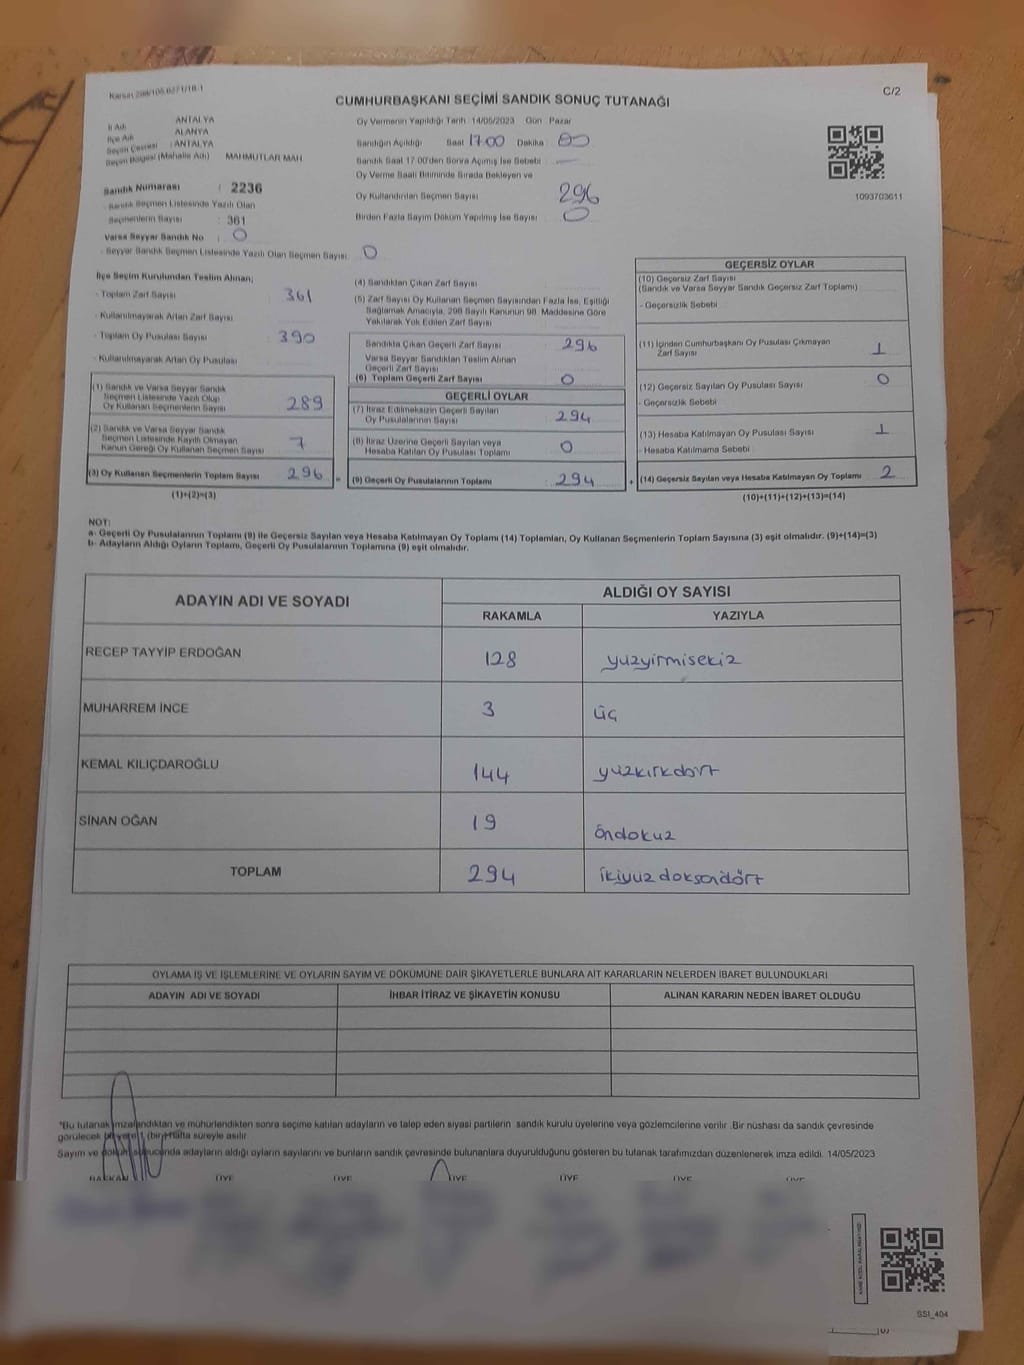 C/2
CUMHURBAŞKANI SEÇİMİ SANDIK SONUÇ TUTANAĞI
İl Adı : ANTALYA
İlçe Adı : ALANYA
Seçim Çevresi : ANTALYA
Seçim Bölgesi (Mahalle Adı) : MAHMUTLAR MAH
Sandık Numarası : 2236
- Sandık Seçmen Listesinde Yazılı Olan
Seçmenlerin Sayısı : 361
Varsa Seyyar Sandık No : 0
- Seyyar Sandık Seçmen Listesinde Yazılı Olan Seçmen Sayısı: 0
Oy Vermenin Yapıldığı Tarih :14/05/2023 Gün : Pazar
Sandığın Açıldığı Saat :17:00 Dakika : 00
Sandık Saat 17:00'den Sonra Açılmış İse Sebebi : —
Oy Verme Saati Bitiminde Sırada Bekleyen ve
Oy Kullandırılan Seçmen Sayısı : 296
Birden Fazla Sayım Döküm Yapılmış İse Sayısı : 0
1093703611
İlçe Seçim Kurulundan Teslim Alınan;
- Toplam Zarf Sayısı : 361
- Kullanılmayarak Artan Zarf Sayısı :
- Toplam Oy Pusulası Sayısı : 390
- Kullanılmayarak Artan Oy Pusulası :
(1) Sandık ve Varsa Seyyar Sandık
Seçmen Listesinde Yazılı Olup
Oy Kullanan Seçmenlerin Sayısı : 289
(2) Sandık ve Varsa Seyyar Sandık
Seçmen Listesinde Kayıtlı Olmayan
Kanun Gereği Oy Kullanan Seçmen Sayısı : 7
(3) Oy Kullanan Seçmenlerin Toplam Sayısı : 296
(1)+(2)=(3)
(4) Sandıktan Çıkan Zarf Sayısı :
(5) Zarf Sayısı Oy Kullanan Seçmen Sayısından Fazla İse, Eşitliği
Sağlamak Amacıyla, 298 Sayılı Kanunun 98. Maddesine Göre
Yakılarak Yok Edilen Zarf Sayısı :
Sandıkta Çıkan Geçerli Zarf Sayısı : 296
Varsa Seyyar Sandıktan Teslim Alınan
Geçerli Zarf Sayısı :
(6) Toplam Geçerli Zarf Sayısı : 0
GEÇERLİ OYLAR
(7) İtiraz Edilmeksizin Geçerli Sayılan
Oy Pusulalarının Sayısı : 294
(8) İtiraz Üzerine Geçerli Sayılan veya
Hesaba Katılan Oy Pusulası Toplamı : 0
(9) Geçerli Oy Pusulalarının Toplamı : 294
GEÇERSİZ OYLAR
(10) Geçersiz Zarf Sayısı
(Sandık ve Varsa Seyyar Sandık Geçersiz Zarf Toplamı) :
- Geçersizlik Sebebi :
(11) İçinden Cumhurbaşkanı Oy Pusulası Çıkmayan
Zarf Sayısı : 1
(12) Geçersiz Sayılan Oy Pusulası Sayısı : 0
- Geçersizlik Sebebi :
(13) Hesaba Katılmayan Oy Pusulası Sayısı : 1
- Hesaba Katılmama Sebebi :
(14) Geçersiz Sayılan veya Hesaba Katılmayan Oy Toplamı : 2
(10)+(11)+(12)+(13)=(14)
NOT:
a- Geçerli Oy Pusulalarının Toplamı (9) ile Geçersiz Sayılan veya Hesaba Katılmayan Oy Toplamı (14) Toplamları, Oy Kullanan Seçmenlerin Toplam Sayısına (3) eşit olmalıdır. (9)+(14)=(3)
b- Adayların Aldığı Oyların Toplamı, Geçerli Oy Pusulalarının Toplamına (9) eşit olmalıdır.
ADAYIN ADI VE SOYADI
ALDIĞI OY SAYISI
RAKAMLA YAZIYLA
RECEP TAYYİP ERDOĞAN 128 yüzyirmisekiz
MUHARREM İNCE 3 üç
KEMAL KILIÇDAROĞLU 144 yüzkırkdört
SİNAN OĞAN 19 öndokuz
TOPLAM 294 ikiyüzdoksandört
OYLAMA İŞ VE İŞLEMLERİNE VE OYLARIN SAYIM VE DÖKÜMÜNE DAİR ŞİKAYETLERLE BUNLARA AİT KARARLARIN NELERDEN İBARET BULUNDUKLARI
ADAYIN ADI VE SOYADI İHBAR İTİRAZ VE ŞİKAYETİN KONUSU ALINAN KARARIN NEDEN İBARET OLDUĞU
*Bu tutanak imzalandıktan ve mühürlendikten sonra seçime katılan adayların ve talep eden siyasi partilerin sandık kurulu üyelerine veya gözlemcilerine verilir. Bir nüshası da sandık çevresinde
görülecek bir yere 1 (bir) hafta süreyle asılır.
Sayım ve döküm sonucunda adayların aldığı oyların sayılarını ve bunların sandık çevresinde bulunanlara duyurulduğunu gösteren bu tutanak tarafımızdan düzenlenerek imza edildi. 14/05/2023
BAŞKAN ÜYE ÜYE ÜYE ÜYE ÜYE ÜYE
SSI_404